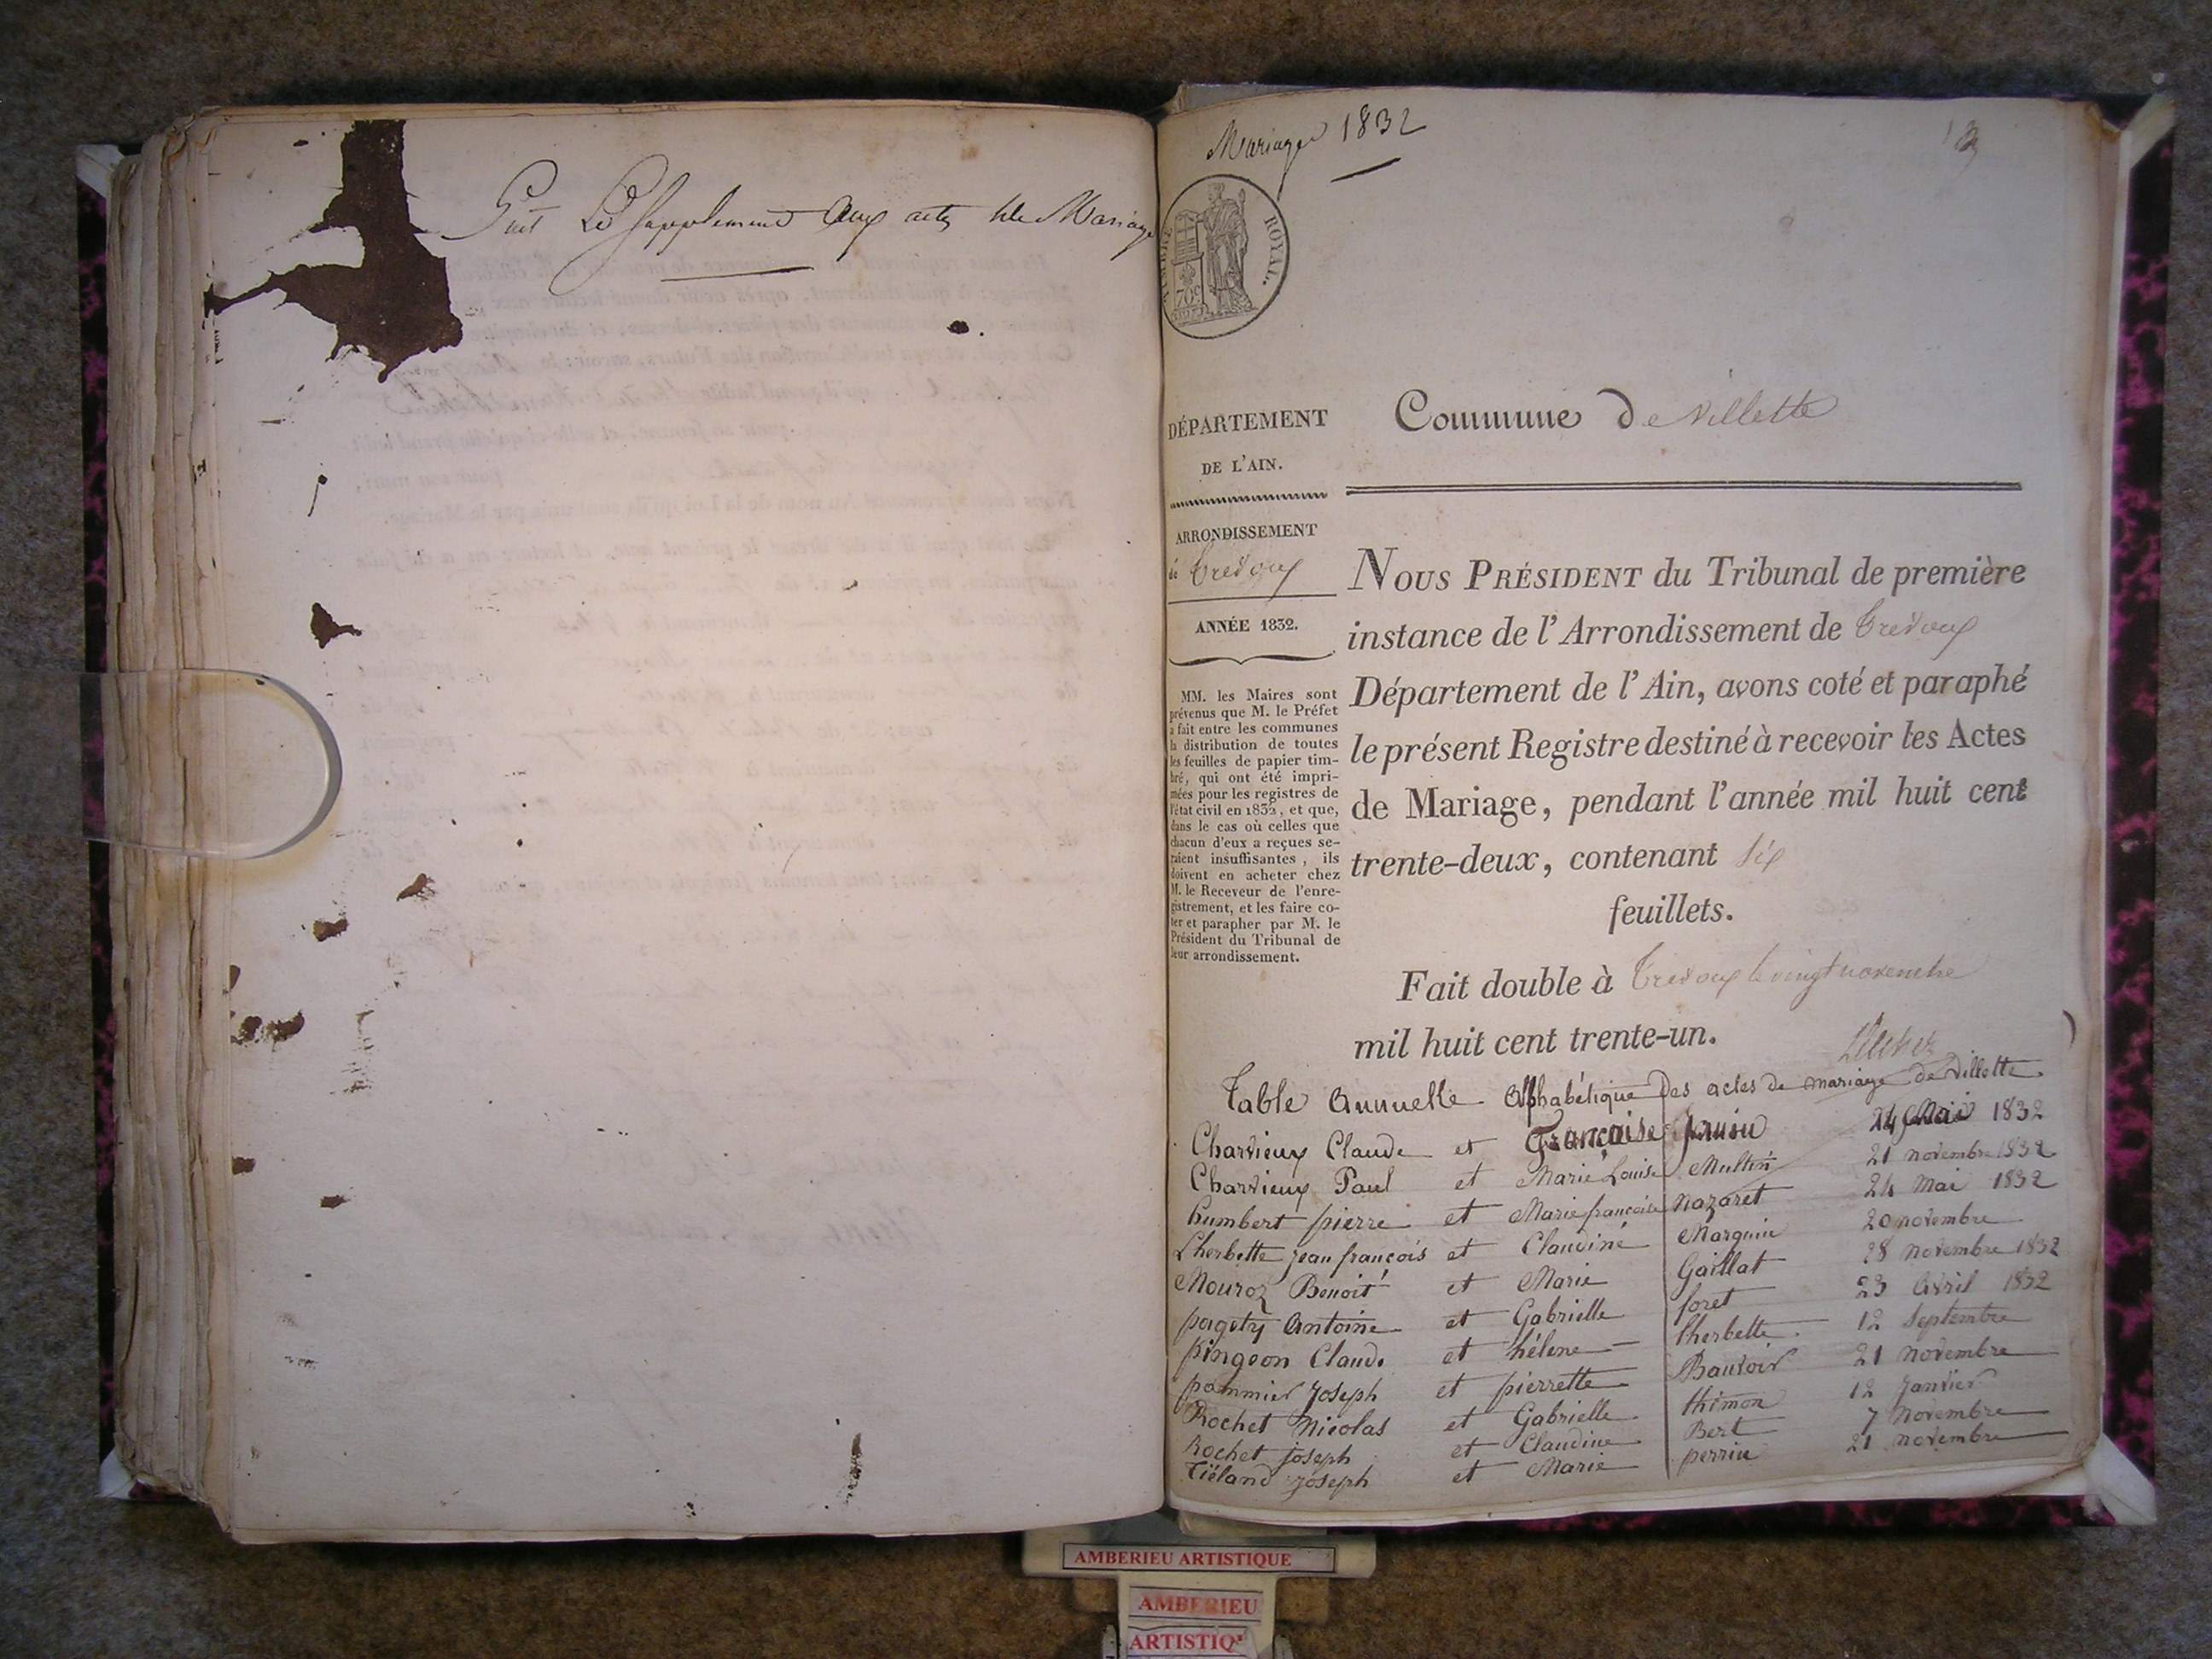 Suit Le Supplement Aux actes de Mariage
Mariage 1832
TIMBRE ROYAL.
70c
DÉPARTEMENT
DE L'AIN.
ARRONDISSEMENT
de Trevoux
ANNÉE 1832.
MM. les Maires sont
prévenus que M. le Préfet
a fait entre les communes
la distribution de toutes
les feuilles de papier tim-
bré, qui ont été impri-
mées pour les registres de
l'état civil en 1832, et que,
dans le cas où celles que
chacun d'eux a reçues se-
raient insuffisantes, ils
doivent en acheter chez
M. le Receveur de l'enre-
gistrement, et les faire co-
ter et parapher par M. le
Président du Tribunal de
leur arrondissement.
Commune de Villette
NOUS PRÉSIDENT du Tribunal de première
instance de l'Arrondissement de Trevoux
Département de l'Ain, avons coté et paraphé
le présent Registre destiné à recevoir les Actes
de Mariage, pendant l'année mil huit cent
trente-deux, contenant six
feuillets.
Fait double à Trevoux le vingt novembre
mil huit cent trente-un.
Table Annuelle Alphabétique Des actes de mariage de Villette
Charvieux Claude et Françoise 24 Mai 1832
Charvieux Paul et Marie Louise Multin 21 novembre 1832
humbert pierre et Marie françoise nazaret 24 Mai 1832
Lherbette jean françois et Claudine Marguin 20 novembre
Mouroz Benoit et Marie Gaillat 28 novembre 1832
pagety Antoine et Gabrielle foret 23 Avril 1832
pingeon Claude et hélene lherbette 12 Septembre
pommier Joseph et pierrette Bauvoir 21 novembre
Rochet Nicolas et Gabrielle thimon 12 Janvier
Rochet joseph et Claudine Bert 7 novembre
Tiéland Joseph et Marie perrin 21 novembre
AMBERIEU ARTISTIQUE
AMBERIEU
ARTISTIQ